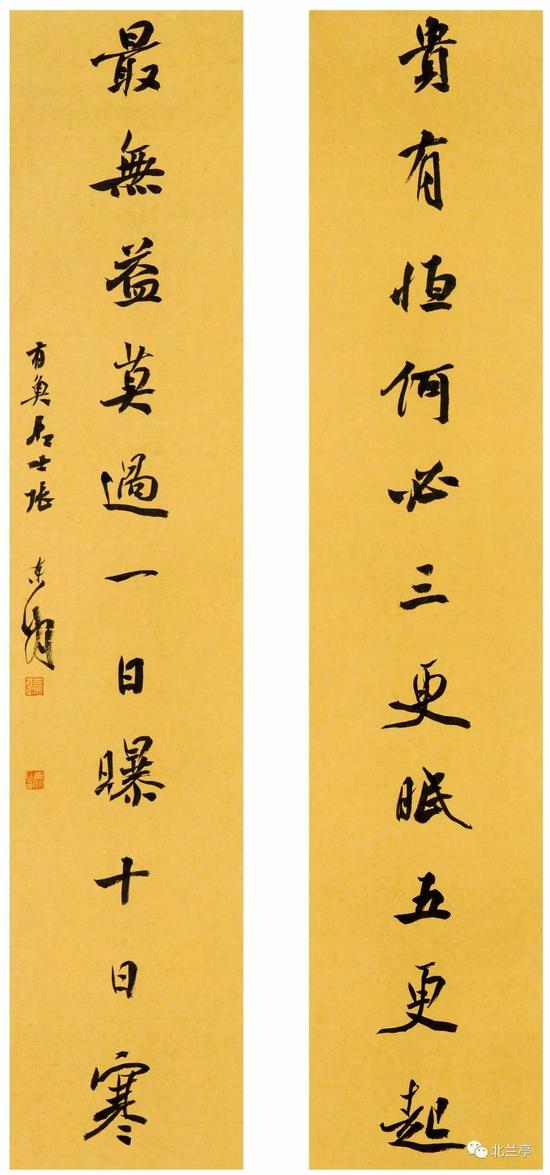 貴有恒何必三更眠五更起
最無益莫過一日曝十日寒
有奐居士張
北兰亭